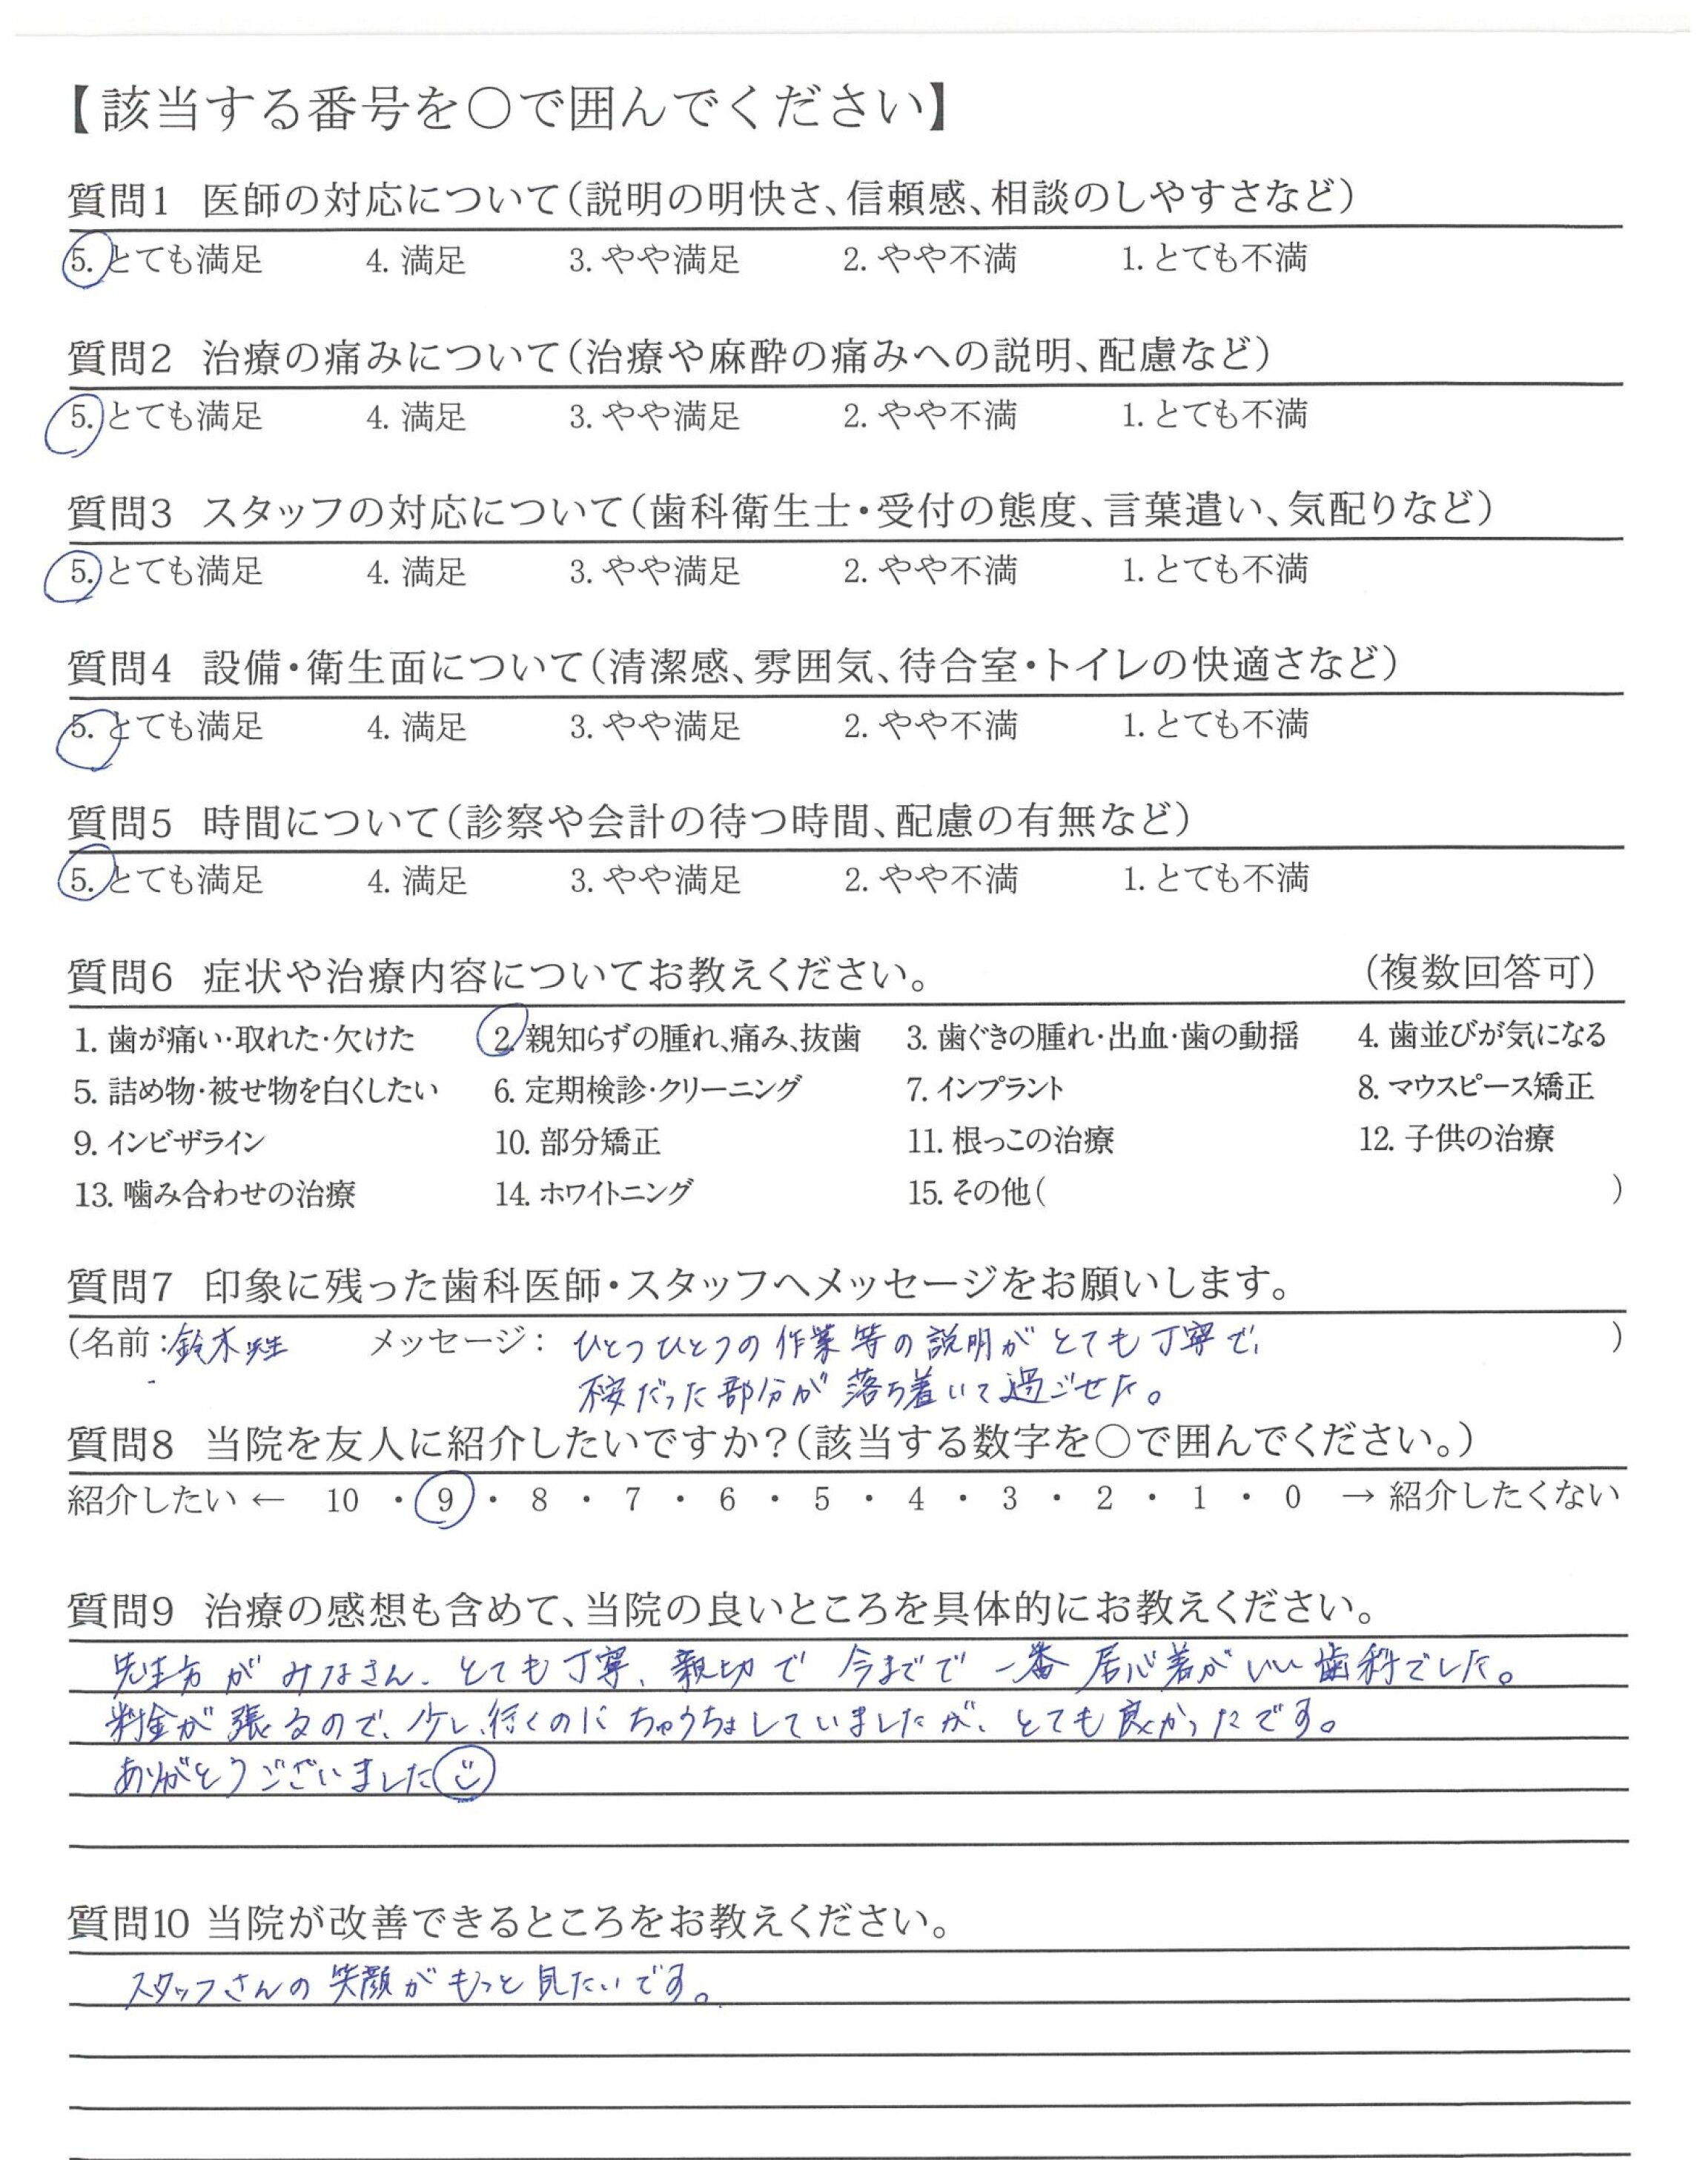 【該当する番号を〇で囲んでください】
質問1 医師の対応について(説明の明快さ、信頼感、相談のしやすさなど)
5. とても満足 4. 満足 3. やや満足 2. やや不満 1. とても不満
質問2 治療の痛みについて(治療や麻酔の痛みへの説明、配慮など)
5. とても満足 4. 満足 3. やや満足 2. やや不満 1. とても不満
質問3 スタッフの対応について(歯科衛生士・受付の態度、言葉遣い、気配りなど)
5. とても満足 4. 満足 3. やや満足 2. やや不満 1. とても不満
質問4 設備・衛生面について(清潔感、雰囲気、待合室・トイレの快適さなど)
5. とても満足 4. 満足 3. やや満足 2. やや不満 1. とても不満
質問5 時間について(診察や会計の待つ時間、配慮の有無など)
5. とても満足 4. 満足 3. やや満足 2. やや不満 1. とても不満
質問6 症状や治療内容についてお教えください。 (複数回答可)
1. 歯が痛い・取れた・欠けた 2. 親知らずの腫れ、痛み、抜歯 3. 歯ぐきの腫れ・出血・歯の動揺 4. 歯並びが気になる
5. 詰め物・被せ物を白くしたい 6. 定期検診・クリーニング 7. インプラント 8. マウスピース矯正
9. インビザライン 10. 部分矯正 11. 根っこの治療 12. 子供の治療
13. 噛み合わせの治療 14. ホワイトニング 15. その他( )
質問7 印象に残った歯科医師・スタッフへメッセージをお願いします。
(名前:鈴木先生 メッセージ: ひとつひとつの作業等の説明がとても丁寧で、 )
不安だった部分が落ち着いて過ごせた。
質問8 当院を友人に紹介したいですか?(該当する数字を〇で囲んでください。)
紹介したい ← 10 ・ 9 ・ 8 ・ 7 ・ 6 ・ 5 ・ 4 ・ 3 ・ 2 ・ 1 ・ 0 → 紹介したくない
質問9 治療の感想も含めて、当院の良いところを具体的にお教えください。
先生方がみなさん、とても丁寧、親切で今までで一番居心着がいい歯科でした。
料金が張るので、少し、行くのにちゅうちょしていましたが、とても良かったです。
ありがとうございました
質問10 当院が改善できるところをお教えください。
スタッフさんの笑顔がもっと見たいです。